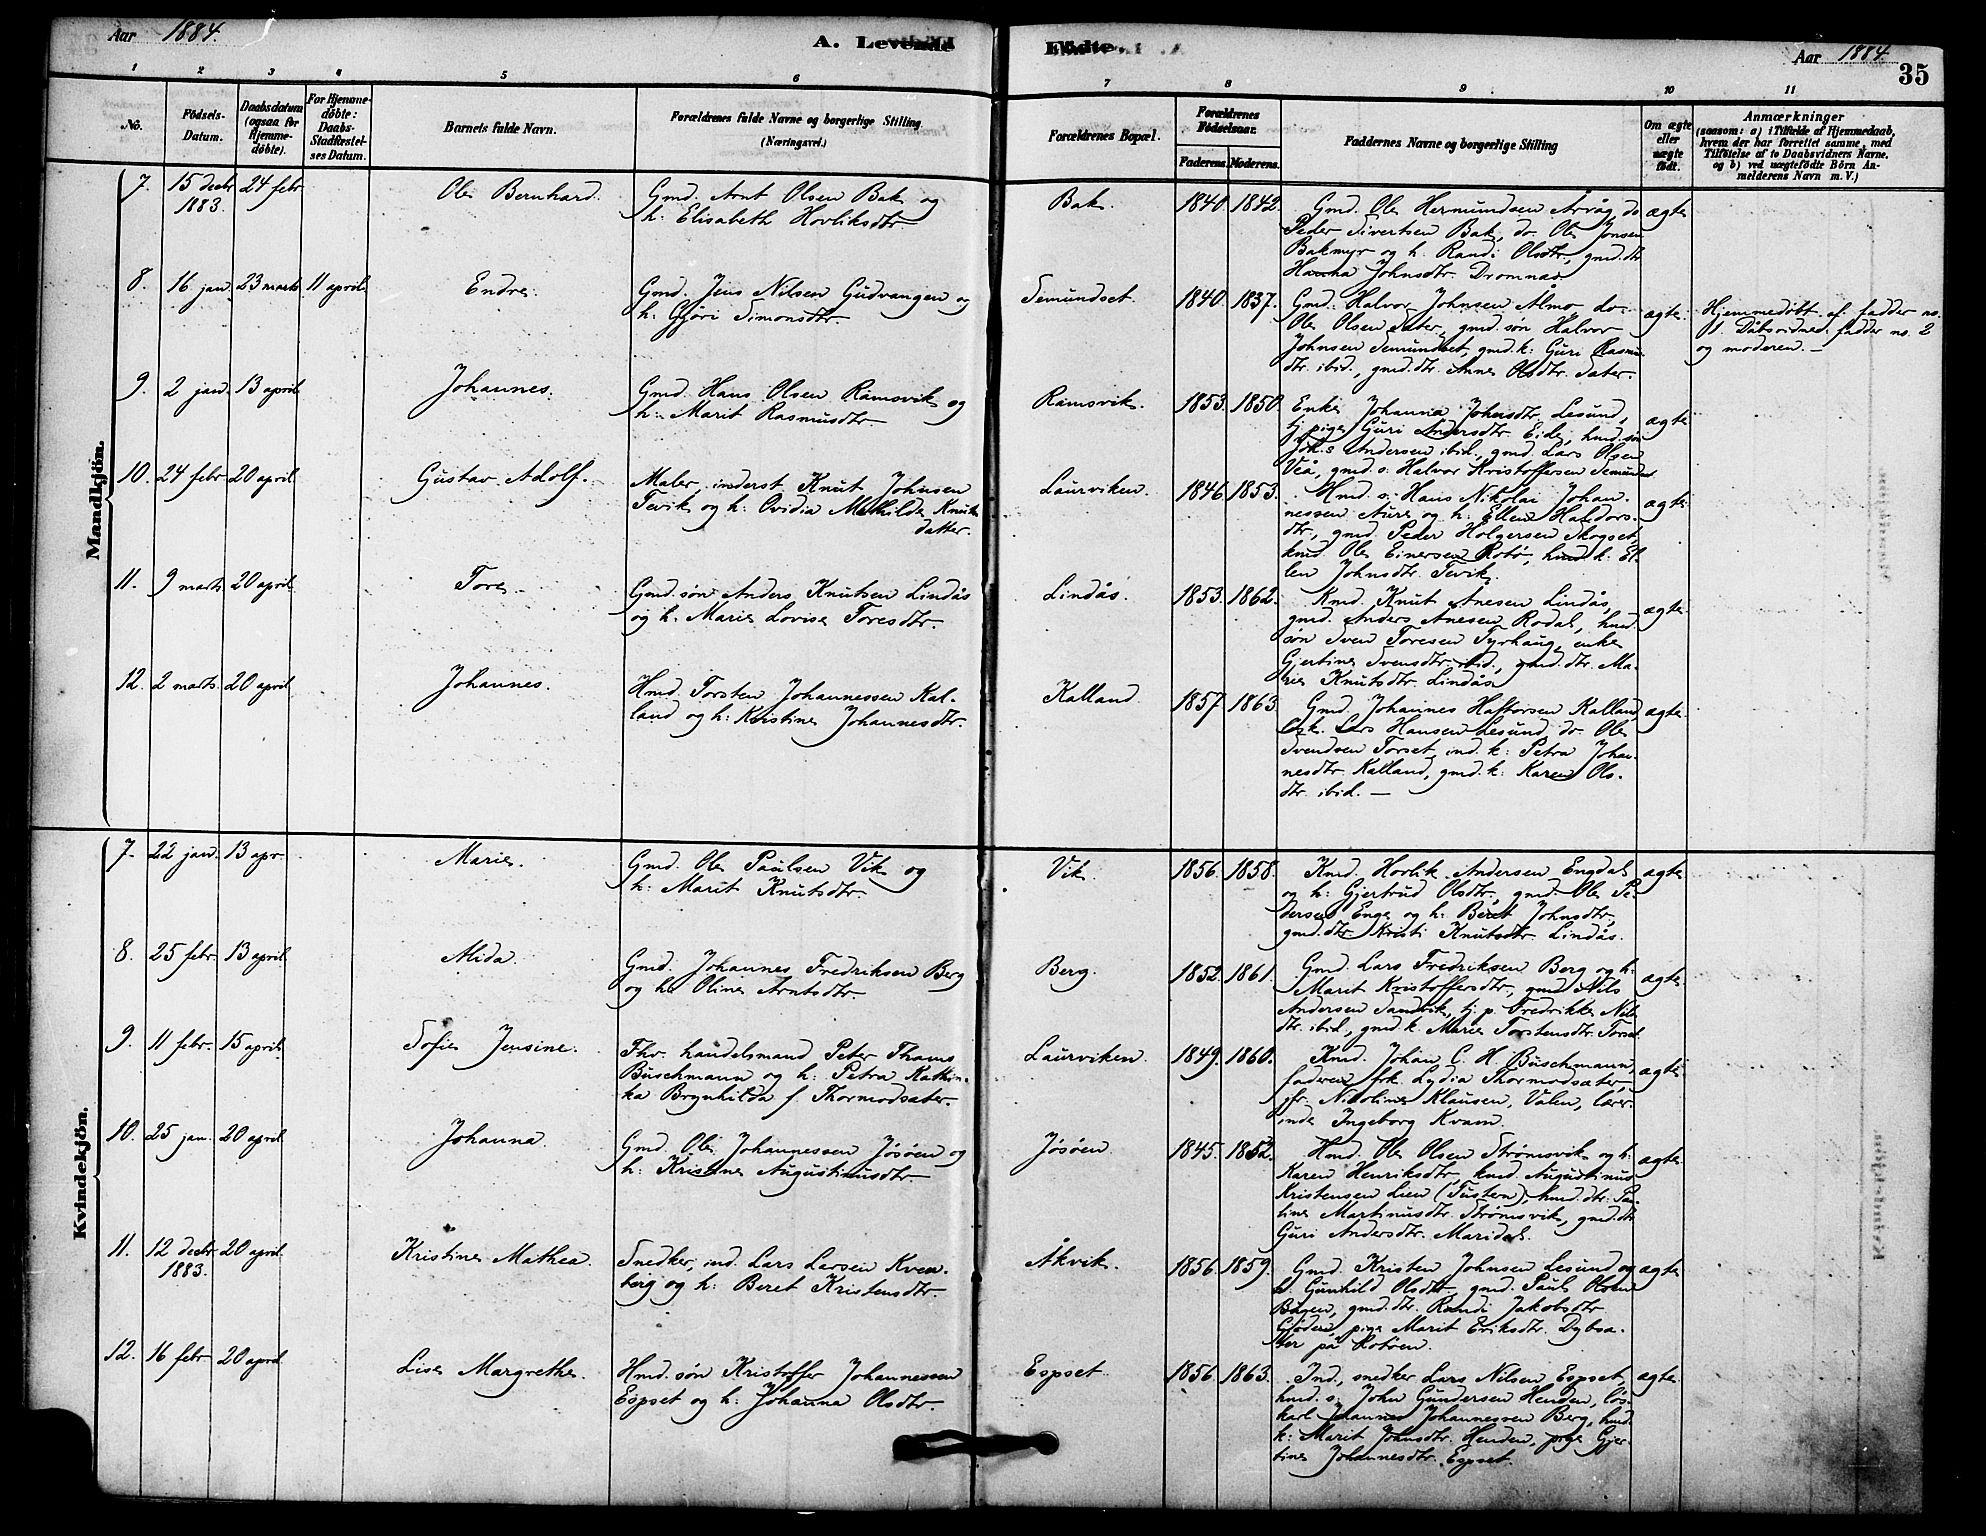 Aar 1884. A. Levende Födte. Aar 1884. 35
1 2 3 4 5 6 7 8 9 10 11
No.
Födsels-
Datum.
Daabsdatum
(ogsaa for
Hjemme-
döbte).
For Hjemme-
döbte:
Daabs-
Stadfæstel-
ses Datum.
Barnets fulde Navn.
Forældrenes fulde Navne og borgerlige Stilling
(Næringsvei.)
Forældrenes Bopæl.
Forældrenes
Födselsaar.
Faderens. Moderens.
Faddernes Navne og borgerlige Stilling
Om ægte
eller
uægte
födt.
Anmærkninger
(saasom: a) i Tilfælde af Hjemmedaab,
hvem der har forrettet samme, med
Tilföielse af to Daabsvidners Navne,
og b) ved uægtefödte Börn An-
melderens Navn m. V.)
Mandkjön.
7. 15 decbr 24 febr
1883.
Ole Bernhard.
Gmd. Arnt Olsen Bak og
h: Elisabeth Hovliksdtr.
Bak. 1840. 1842.
Gmd. Ole Hermundsen Årvåg, do
Peder Sivertsen Bak, do. Ole Jonsen
Bakmyr og h. Randi Olsdtr., gmd. dtr
Hanna Johnsdtr. Dromnæs.
ægte
8. 16 jan. 23 marts 11 april.
Endre.
Gmd. Jens Nilsen Gudvangen og
h: Gjöri Simonsdtr.
Semundset. 1840. 1837.
Gmd. Halvor Johnsen Almo, do
Ole Olsen Sæter, gmd. søn Halvor
Johnsen Semundset, gmd. k: Guri Rasmus
dtr. ibid., gmd. dtr. Anne Olsdtr. Sæter.
ægte.
Hjemmedöbt af fadder no.
1. Dåbsvidner: fadder no. 2
og moderen. —
9. 2 jan. 13 april.
Johannes.
Gmd. Hans Olsen Ramsvik og
h: Marit Rasmusdtr
Ramsvik. 1853. 1850.
Enke Johanna Johnsdtr. Lesund,
tj. pige Guri Andersdtr. Eide, hmd. søn
Joh.s Andersen ibid., gmd. Lars Olsen
Veå, gmd. s: Halvor Kristoffersen Semundset
ægte
10. 24 febr 20 april.
Gustav Adolf.
Maler, inderst Knut Johnsen
Tevik og h: Ovidia Mathilde Knuts
datter.
Laurviken. 1846. 1853.
Hmd. s: Hans Nikolai Johan-
nessen Aure og h. Ellen Haldors-
dtr, gmd. Peder Holgersen Skogset,
kmd. Ole Einersen Rotø, hmd. k. El-
len Johnsdtr. Tevik.
ægte.
11. 9 marts 20 april.
Tore.
Gmd. søn Anders Knutsen Lindås
og h. Marie Lovise Toresdtr.
Lindås. 1853. 1862.
Kmd. Knut Anesen Lindås,
gmd. Anders Anesen Rodal, hmd.
søn Sven Toresen Tyrhaug, enke
Gjertine Svensdtr. ibid., gmd. dtr. Ma-
rie Knutsdtr. Lindås.
ægte.
12. 2 marts. 20 april
Johannes.
Hmd. Torsten Johannessen Kal-
land og h: Kristine Johannesdtr.
Kalland. 1857 1863
Gmd. Johannes Haftorsen Kalland,
Lars Hansen Lesund, do. Ole
Svendsen Torset, ind. k: Petra Johan-
nesdtr. Kalland, gmd. k: Karen Ols-
dtr. ibid. —
ægte.
Kvindekjön.
7. 22 jan. 13 apr.
Marie.
Gmd. Ole Paulsen Vik og
h: Marit Knutsdtr.
Vik. 1856. 1858.
Kmd. Hovlik Andersen Engdal
og h: Gjertrud Olsdtr, gmd. Ole Pe-
dersen Enge og h: Beret Johnsdtr,
gmd. dtr. Kristi Knutsdtr. Lindås.
ægte.
8. 25 febr. 13 april.
Alida.
Gmd. Johannes Fredriksen Berg
og h: Oline Arntsdtr.
Berg. 1852. 1861.
Gmd. Lars Fredriksen Berg og h:
Marit Kristoffersdtr, gmd Nils
Andersen Sandvik, tj. p. Fredrikke Nils
dtr. ibid., gmd. k. Marie Torstensdtr. Torset.
ægte.
9. 11 febr. 15 april.
Sofie Jensine.
Fhv. handelsmand Peter Thams
Buschmann og h: Petra Kathin-
ka Brynhilda f. Thormodsæter.
Laurviken. 1849. 1860.
Kmd. Johan C. H. Buschmann,
faderen, frk. Lydia Thormodsæter,
jfr. Nikoline Klausen, Valen, lærer-
inde Ingeborg Kvam.
ægte.
10. 25 jan. 20 april.
Johanna.
Gmd. Ole Johannessen Jøsøen og
h: Kristine Augustinusdtr
Jøsøen. 1845. 1852.
Hmd. Ole Olsen Strømsvik og h.
Karen Henriksdtr, kmd. Augustinus
Kristensen Lien (Tustern), hmd. dtr. Pau-
line Martinusdtr. Strømsvik, gmd. dtr
Guri Andersdtr. Maridal.
ægte.
11. 12 decbr 20 april.
1883.
Kristine Mathea.
Snedker, ind. Lars Larsen Kven-
berg og h: Beret Kristensdtr
Åkvik. 1856. 1859.
Gmd. Kristen Johnsen Lesund og
h. Gunhild Olsdtr, gmd. Paul Olsen
Bügen, gmd. dtr. Randi Jakobsdtr.
Gjøden, pige Marit Eriksdtr. Dybsæ-
ter på Rotøen.
ægte.
12. 16 febr 20 april
Lise Margrethe.
Hmd. søn Kristoffer Johannessen
Espset og h: Johanna Olsdtr.
Espset 1856. 1863.
Ind. snedker Lars Nilsen Espset,
hmd. s. John Gundersen Henden, løs-
karl Johannes Johannessen Berg, hmd.
k: Marit Johnsdtr. Henden, pige Gjer-
tine Johannesdtr. Espset.
ægte.